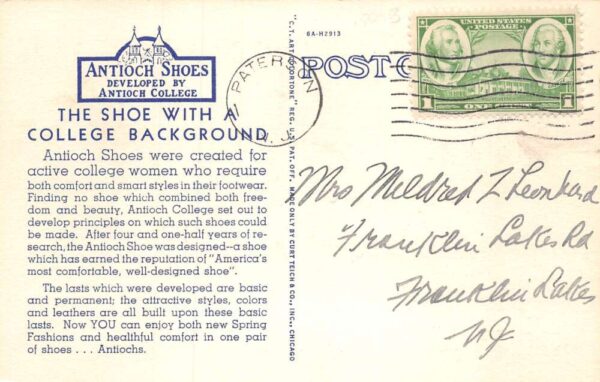 ANTIOCH SHOES
DEVELOPED BY
ANTIOCH COLLEGE
THE SHOE WITH A
COLLEGE BACKGROUND
Antioch Shoes were created for
active college women who require
both comfort and smart styles in their footwear.
Finding no shoe which combined both free-
dom and beauty, Antioch College set out to
develop principles on which such shoes could
be made. After four and one-half years of re-
search, the Antioch Shoe was designed--a shoe
which has earned the reputation of "America's
most comfortable, well-designed shoe".
The lasts which were developed are basic
and permanent; the attractive styles, colors
and leathers are all built upon these basic
lasts. Now YOU can enjoy both new Spring
Fashions and healthful comfort in one pair
of shoes . . . Antiochs.
"C.T. ART-COLORTONE" REG. U.S. PAT. OFF. MADE ONLY BY CURT TEICH & CO., INC., CHICAGO
PATERSON
N.J.
6A-H2913
POST C
UNITED STATES
POSTAGE
1 1
Mrs Mildred L Leonhard
Franklin Lakes Rd
Franklin Lakes
NJ